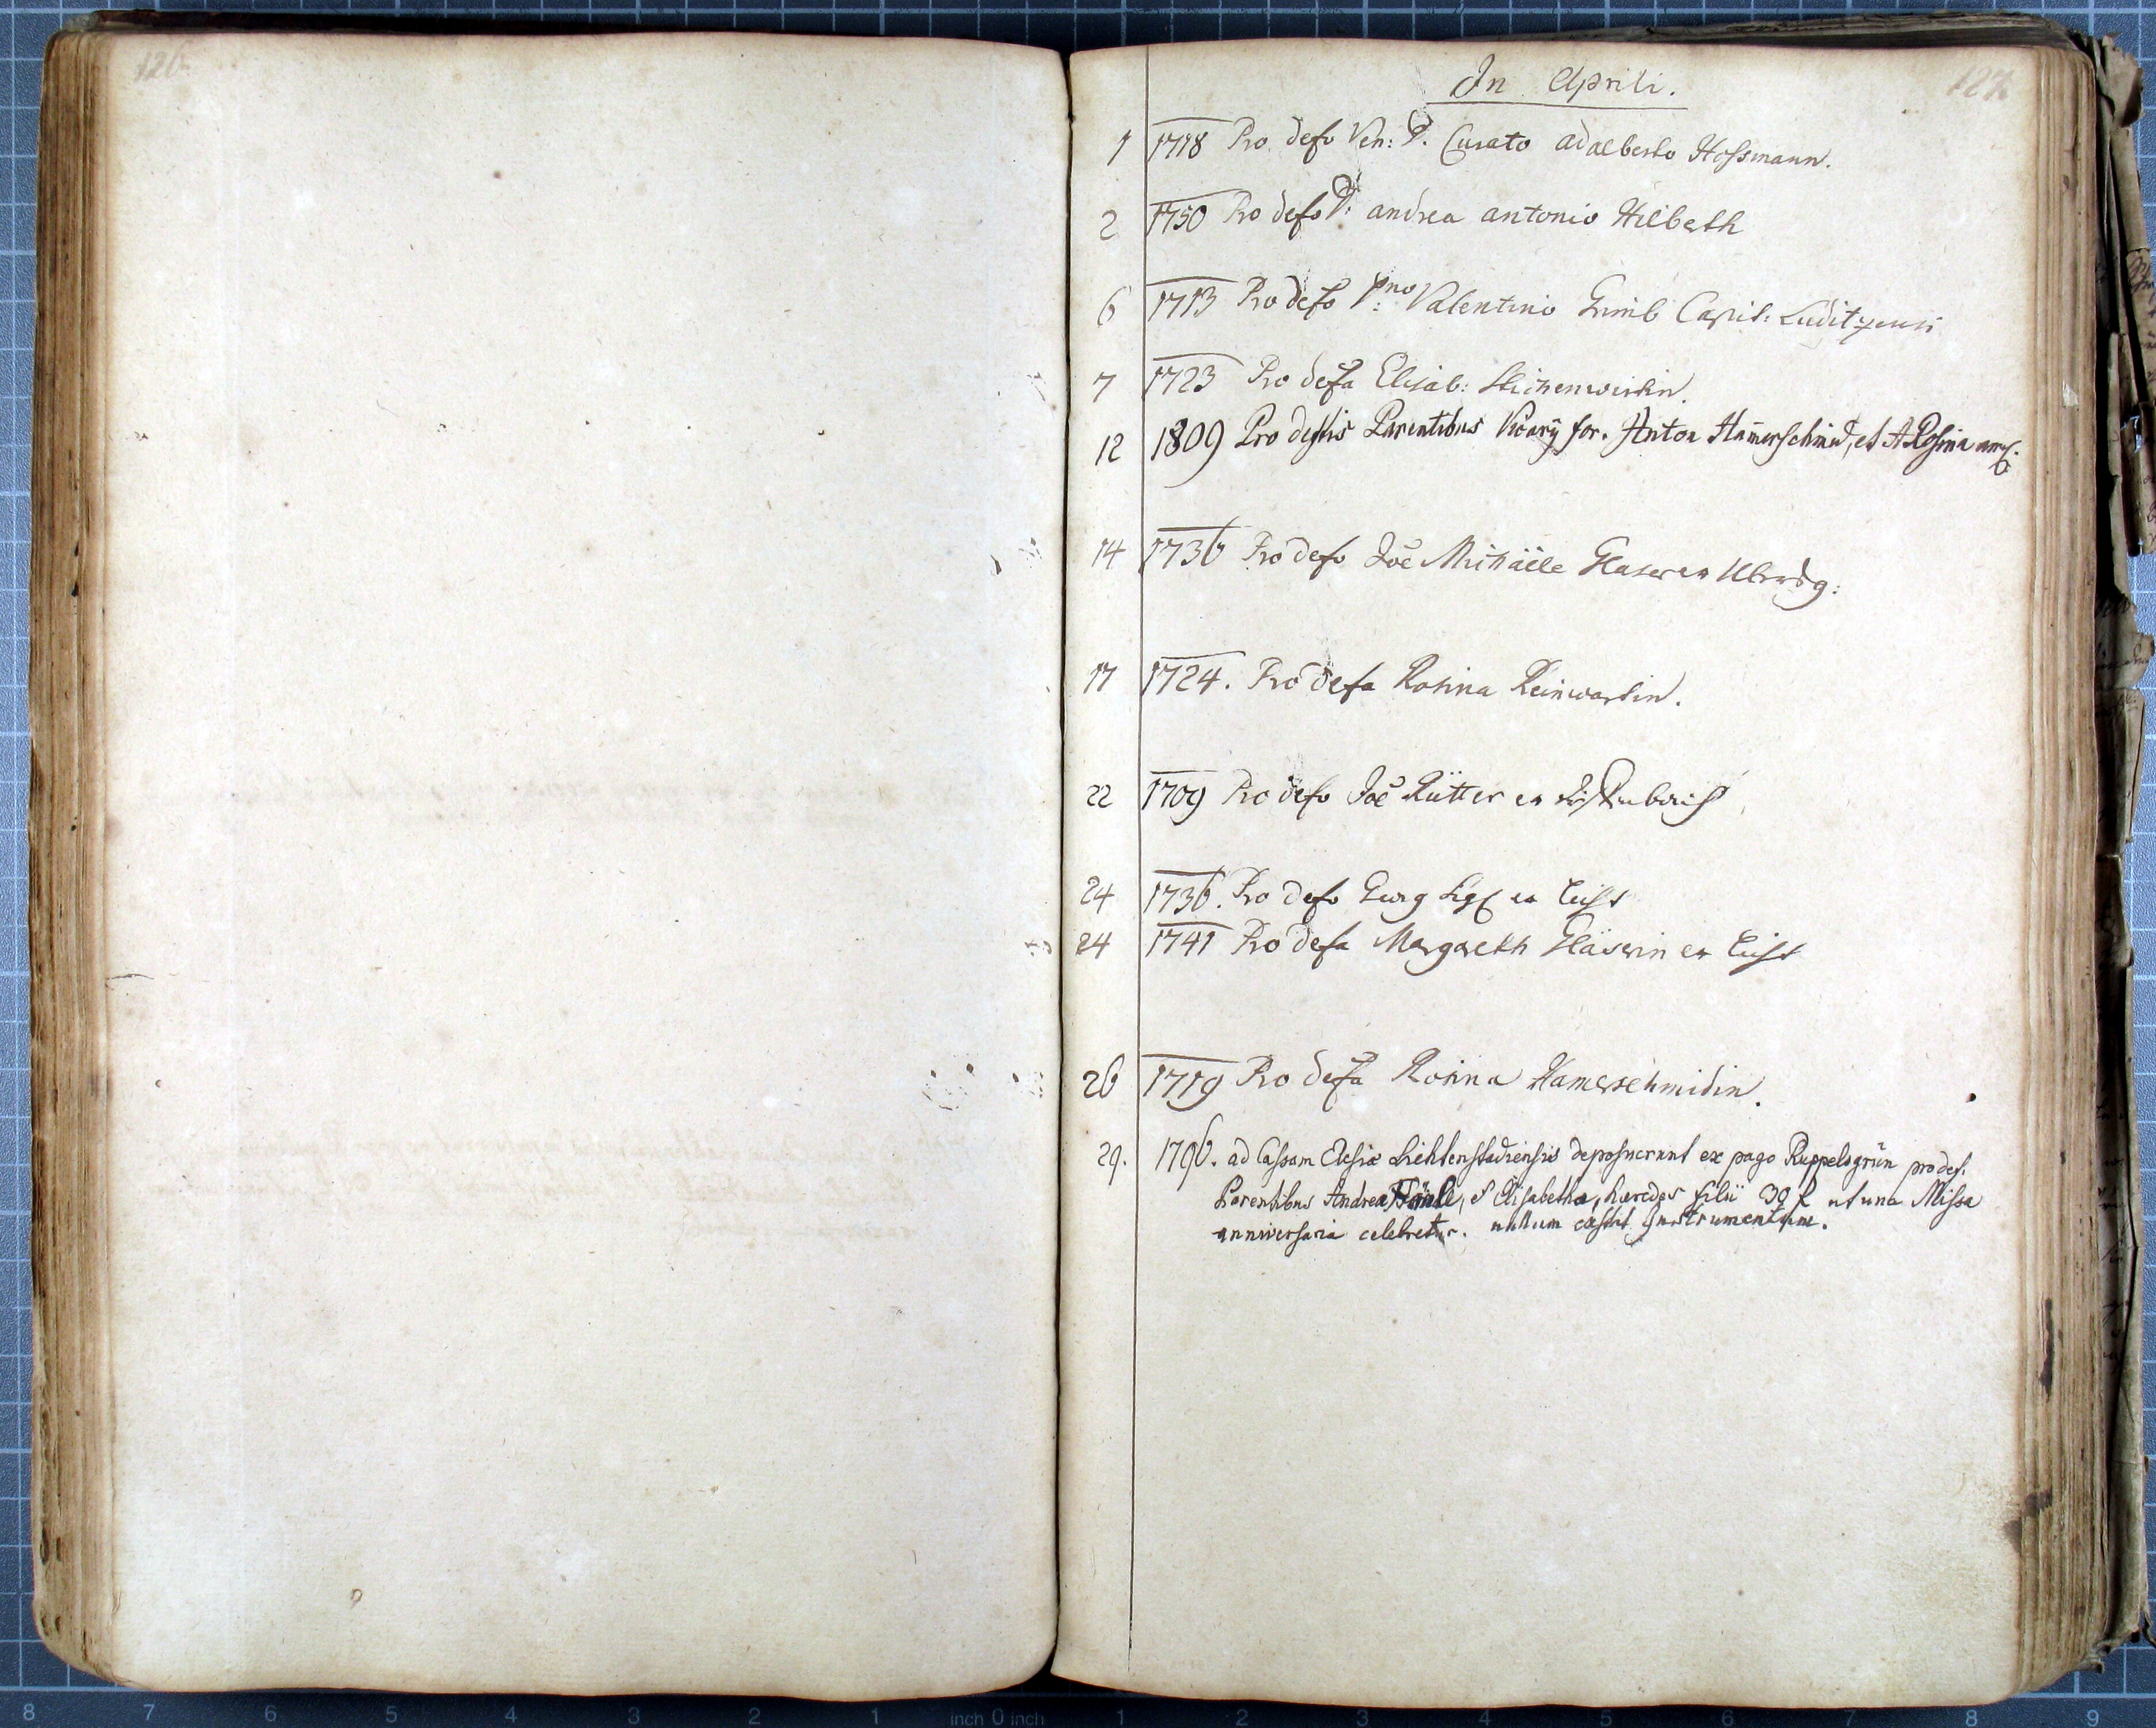 126
In Aprili.
127
1 1718 Pro defo Ven: P. Curato adalberto Hossmann.
2 1750 Pro defo P: andrea antonio Hilberth
6 1713 Pro defo Valentino Grimb Capit: Luditzensi
7 1723 Pro defa Elisab:
12 1809 Pro deftis Parentibus Vicarÿ for. Anton Ham̄erschmid, et A Rosina
14 1736 Pro defo Joe Michäele Glaser ex
17 1724. Pro defa Rosina Reinwartin.
22 1709 Pro defo Joe Rütter ex
24 1736. Pro defo Georg ex
24 1741 Pro defa Margareth Gläserin ex
26 1719 Pro defa Rosina Hamerschmidin.
29. 1796. ad Cassam Ecclesiæ Lichtenstadiensis deposuerunt ex pago Ruppelsgrün pro def.
Parentibus Andrea et Elisabetha, hæredes filii 30 f ut una Missa
anniversaria celebretur. nullum Instrumentum.
8 7 6 5 4 3 2 1 inch 0 inch 1 2 3 4 5 6 7 8 9